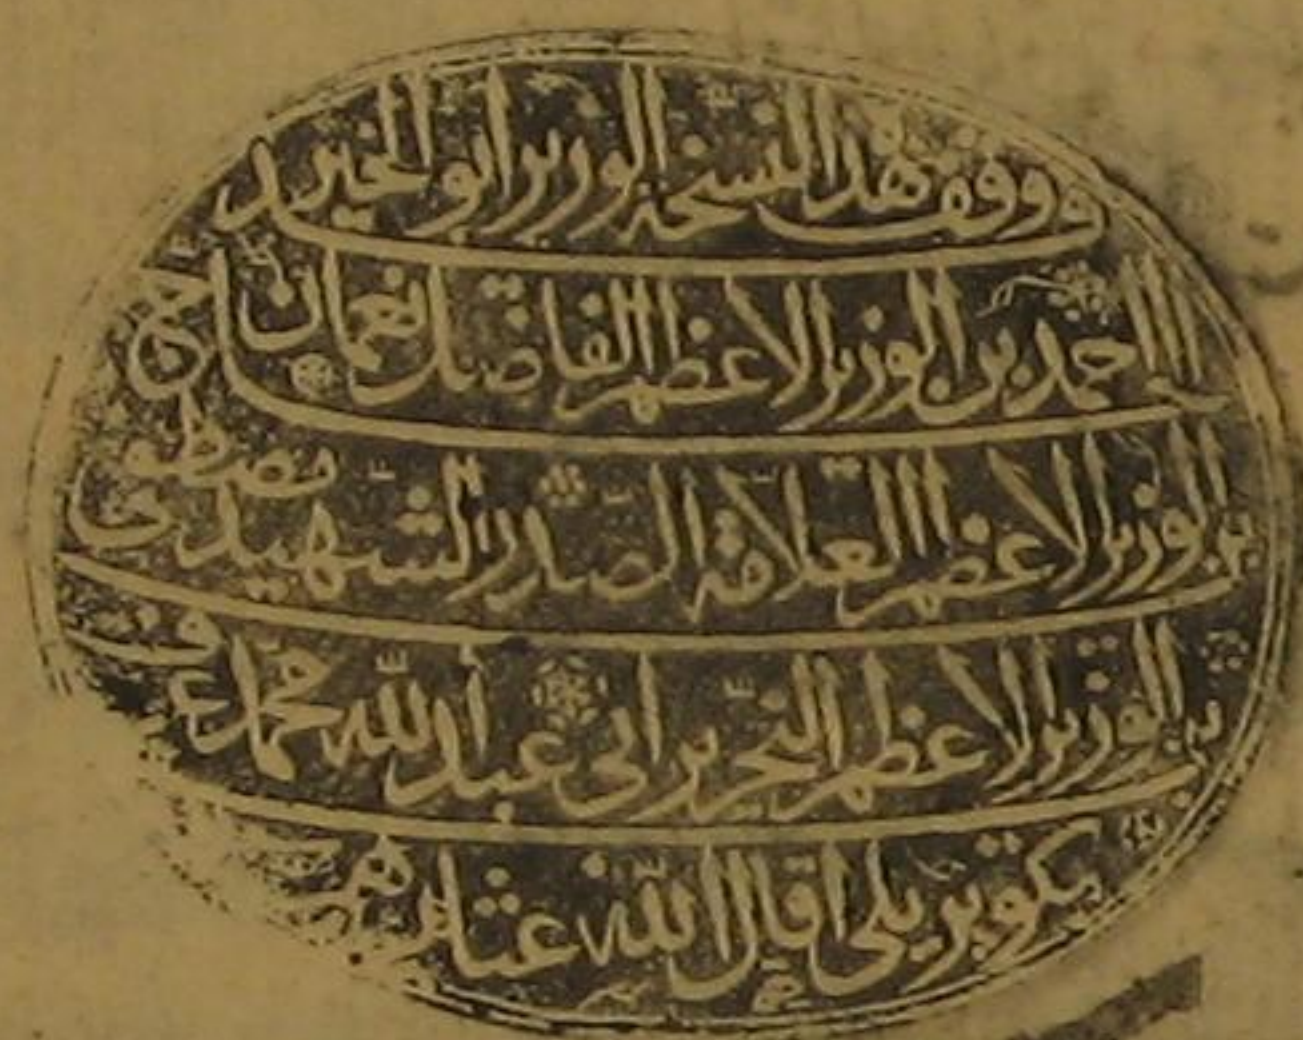 وقف هذ النسخة الوزير ابو الخير
احمد بن الوزير الاعظم الفاضل نعمان
بن الوزير الاعظم العلامة الصدر الشهيد مصطفى
بن الوزير الاعظم النحرير ابي عبد الله محمد عرف
بكوبريلي اقال الله عثارهم